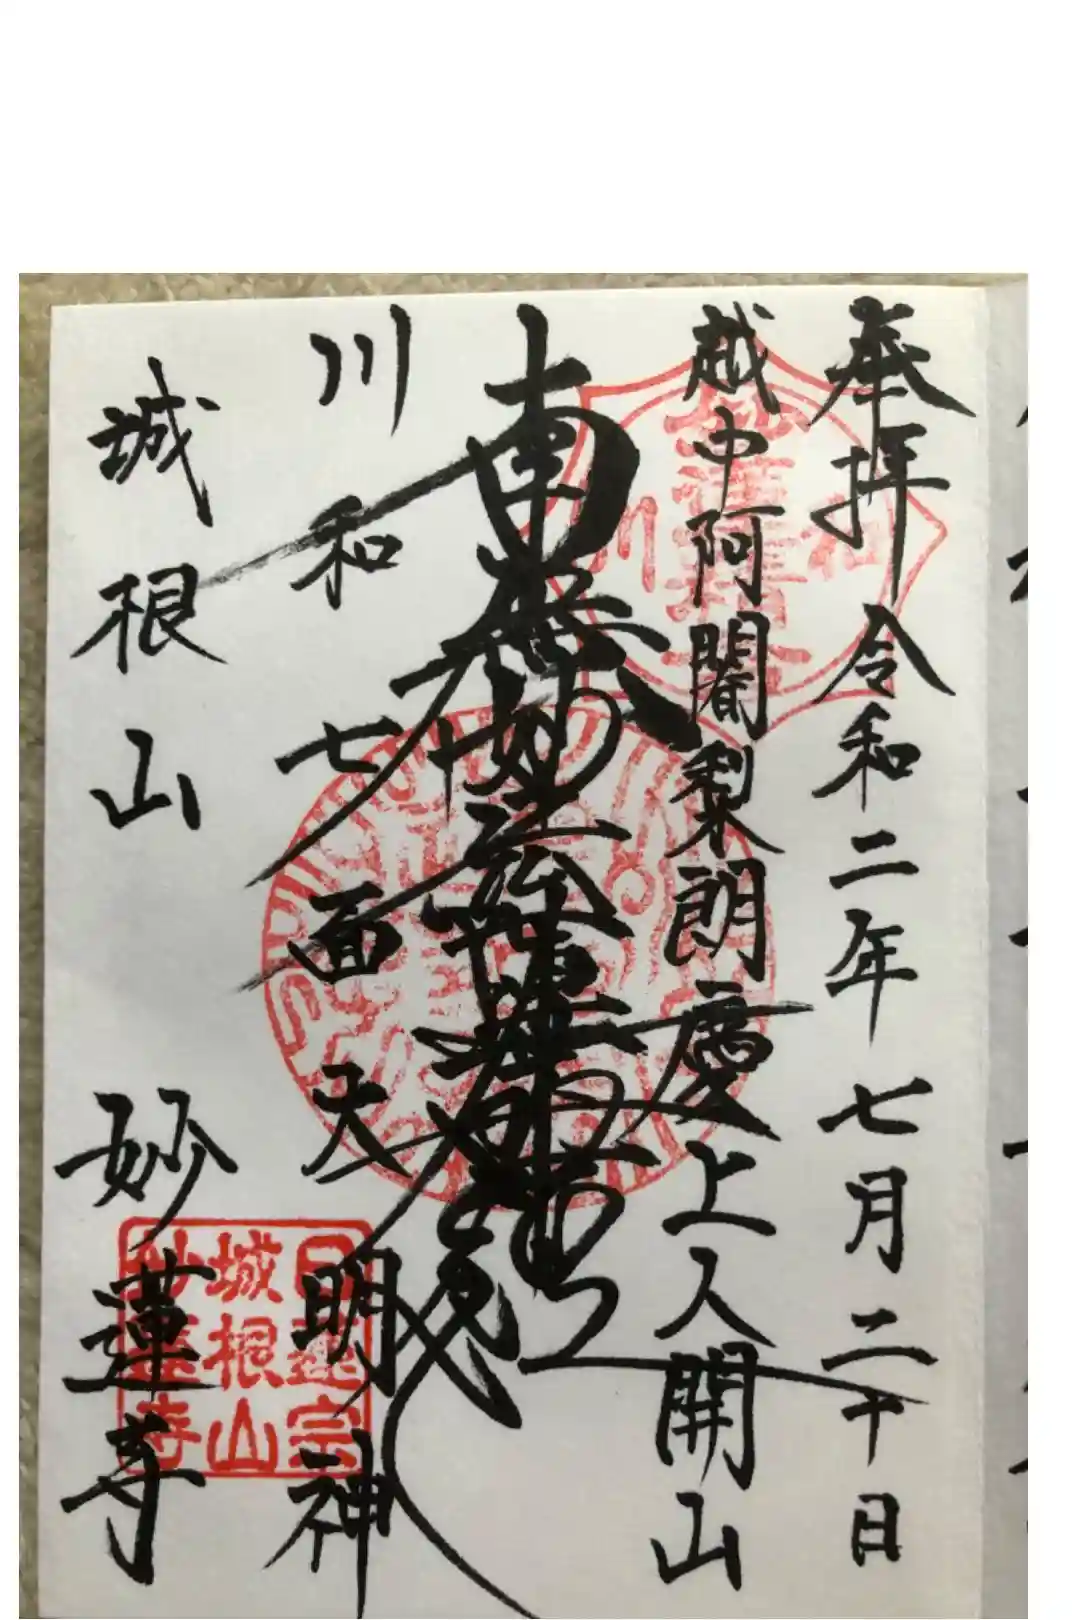 奉拝 令和二年 七月二十日
越中阿闍梨朗慶上人開山
南無妙法蓮華経
川和七面天明神
城根山 妙蓮寺
日蓮宗
城根山
妙蓮寺